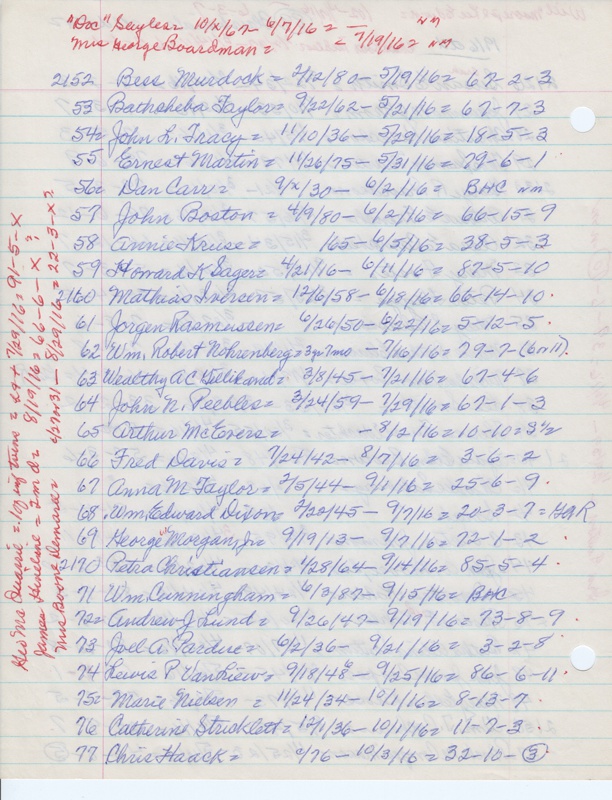 "Doc" Sayles = 10/x/67 - 6/7/16 = — NM
Mrs George Boardman = = 7/19/16 = NM
2152 Bess Murdock = 2/12/80 - 5/19/16 = 67-2-3
53 Bathsheba Taylor = 9/22/62 - 5/21/16 = 67-7-3
54 = John L. Tracy = 11/10/36 - 5/29/16 = 18-5-3
55 Ernest Martin = 11/26/75 - 5/31/16 = 79-6-1
56 = Dan Carr = 9/x/30 - 6/2/16 = BHC NM
57 John Boston = 4/9/80 - 6/2/16 = 66-15-9
58 Annie Kruse = /65 - 6/5/16 = 38-5-3
59 Howard K Sager = 4/21/16 - 6/11/16 = 87-5-10
2160 Mathias Iversen = 12/6/58 - 6/18/16 = 66-14-10
61 Jorgen Rasmussen = 6/26/50 - 6/22/16 = 5-12-5
62 Wm. Robert Nohrenberg = 3yr7mo - 7/16/16 = 79-7-(6 or 11)
63 Wealthy A C = 3/8/45 - 7/21/16 = 67-4-6
64 John N. Peebles = 3/24/59 - 7/29/16 = 67-1-3
65 Arthur McEvers = - 8/2/16 = 10-10 = 3½
66 Fred Davis = 7/24/42 - 8/7/16 = 3-6-2
67 Anna M Taylor = 2/5/44 - 9/1/16 = 25-6-9
68 Wm. Edward Dixon = 2/20/45 - 9/7/16 = 20-3-7 = GAR
69 George Morgan, Jr = 9/19/13 - 9/7/16 = 72-1-2
2170 Petra Christiansen = 1/28/64 - 9/14/16 = 85-5-4
71 Wm. Cunningham = 6/3/87 - 9/15/16 = BHC
72 = Andrew J Lund = 9/26/47 - 9/19/16 = 73-8-9
73 Joel A. Pardue = 6/2/36 - 9/21/16 = 3-2-8
74 Lewis P VanRiew = 9/18/48 - 9/25/16 = 86-6-11
75 = Marie Nielsen = 11/24/34 - 10/1/16 = 8-13-7
76 Catherine Stricklett = 12/1/36 - 10/1/16 = 11-7-3
77 Chris Haack = /76 - 10/3/16 = 32-10-3
Geo Ms = 7/29/16 = 91-5-X
James = 2 m d = 8/19/16 = 66-6-X?
Mrs Boone Demaree = 4/27 or 31 - 8/29/16 = 22-3-X?